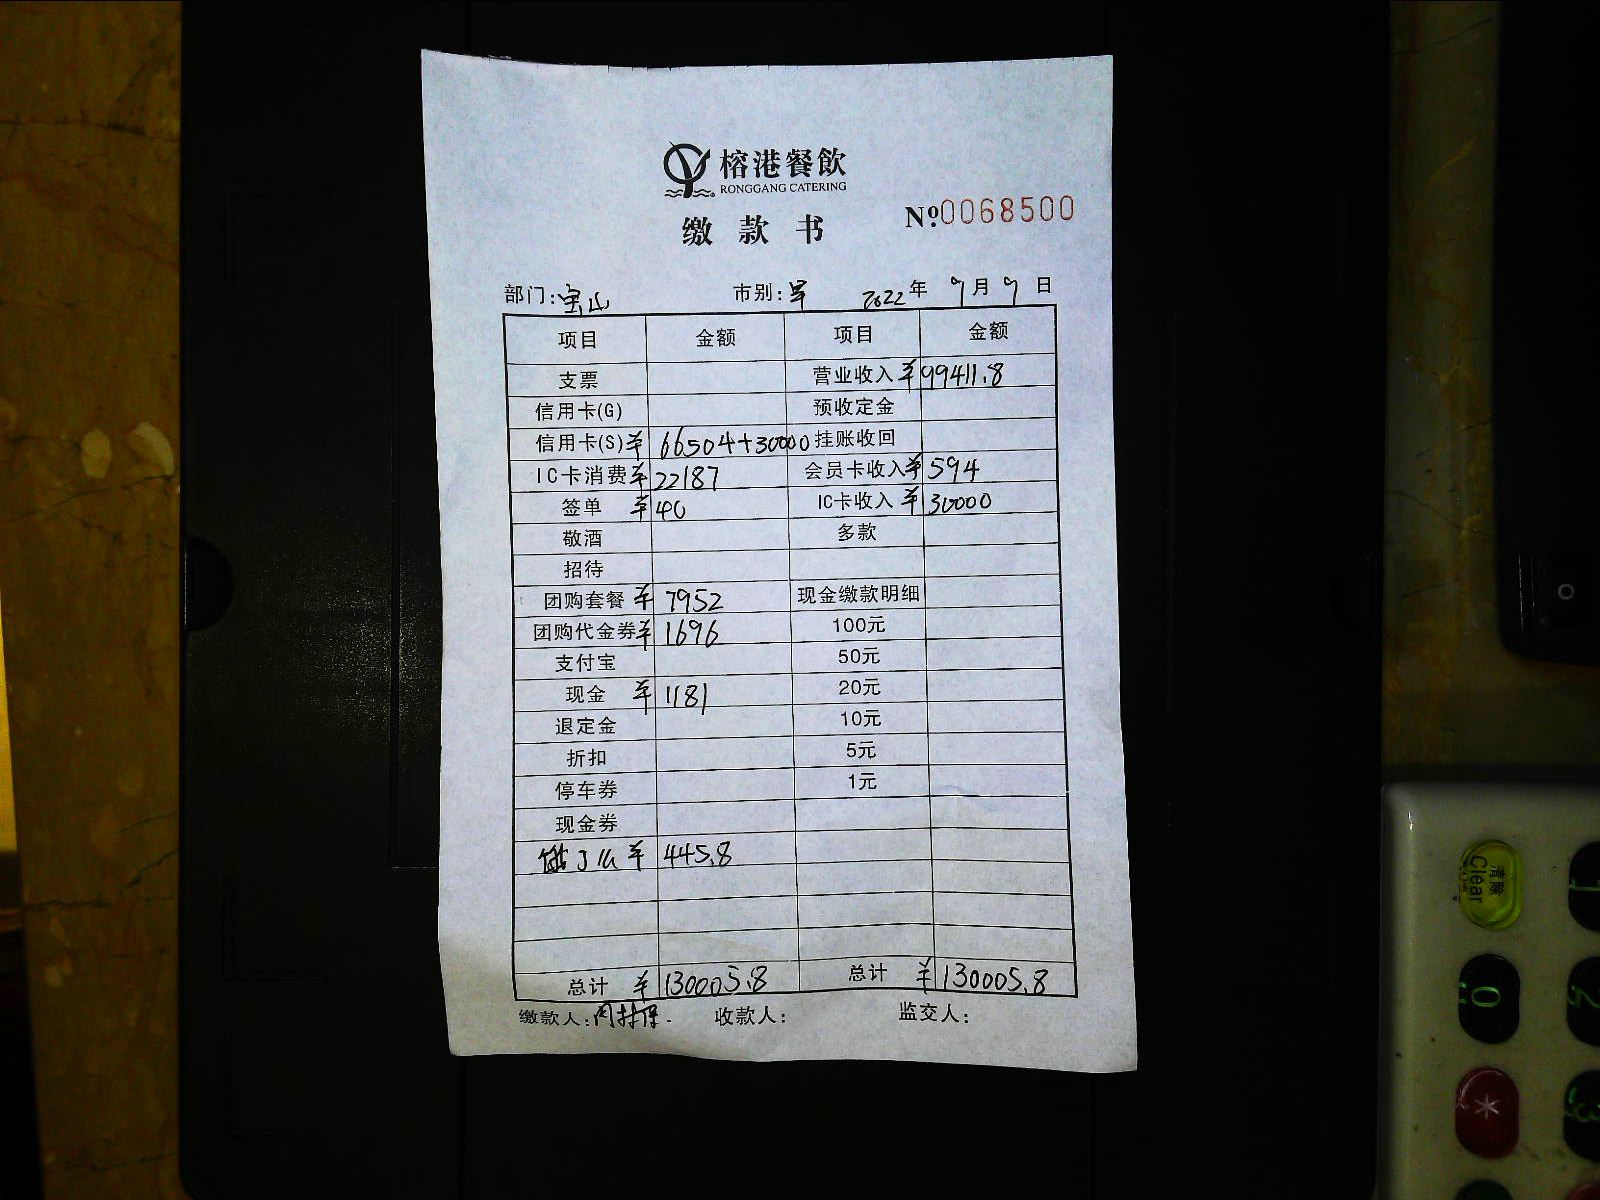 榕港餐飲
RONGGANG CATERING
缴款书 №0068500
部门:宝山 市别:早 2022年9月9日
项目 金额 项目 金额
支票 营业收入 ¥99411.8
信用卡(G) 预收定金
信用卡(S) ¥66504+30000 挂账收回
IC卡消费 ¥22187 会员卡收入 ¥594
签单 ¥40 IC卡收入 ¥30000
敬酒 多款
招待
团购套餐 ¥7952 现金缴款明细
团购代金券 ¥1696 100元
支付宝 50元
现金 ¥1181 20元
退定金 10元
折扣 5元
停车券 1元
现金券
¥445.8
总计 ¥130005.8 总计 ¥130005.8
缴款人: 收款人: 监交人:
清除
Clear
0
2
3
*